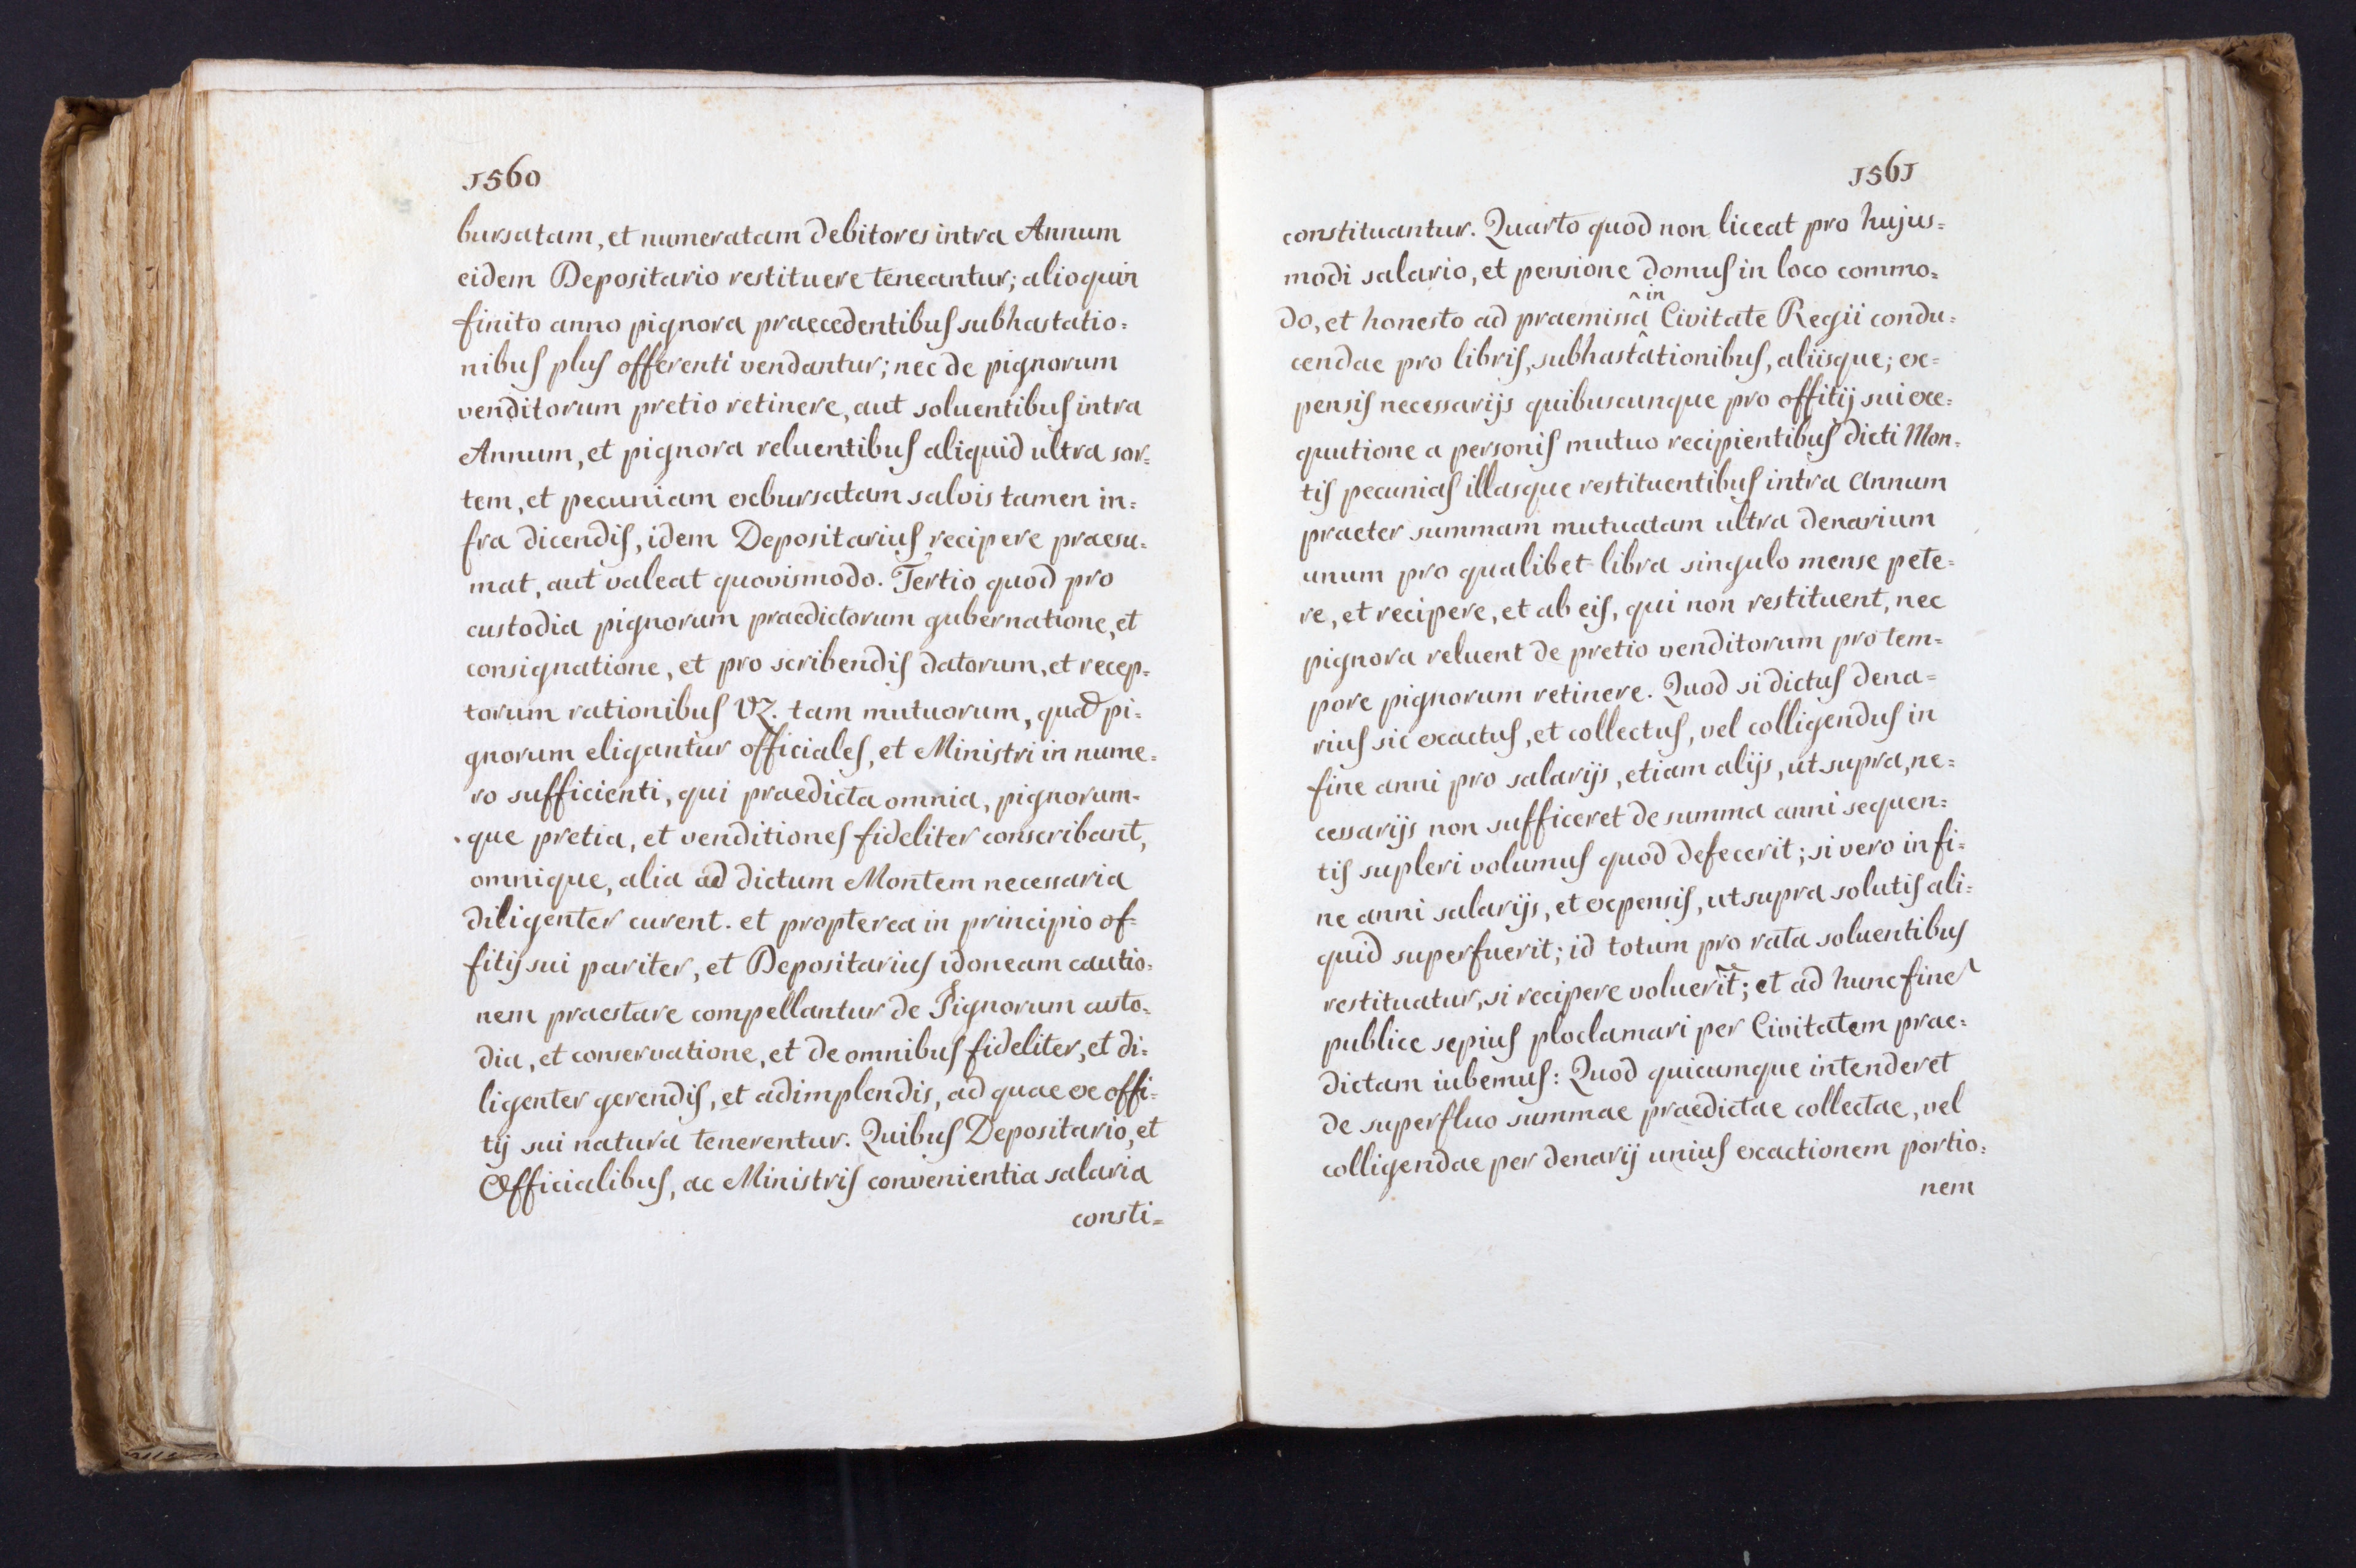 1560
bursatam, et numeratam debitores intra Annum
eidem Depositario restituere teneantur; alioquin
finito anno pignora praecedentibus subhastatio=
nibus plus offerenti vendantur; nec de pignorum
venditorum pretio retinere, aut soluentibus intra
Annum, et pignora reluentibus aliquid ultra sor=
tem, et pecuniam exbursatam salvis tamen in=
fra dicendis, idem Depositarius recipere praesu=
mat, aut valeat quovismodo. Tertio quod pro
custodia pignorum praedictorum gubernatione, et
consignatione, et pro scribendis datorum, et recep=
torum rationibus VZ. tam mutuorum, quad pi=
gnorum eligantur officiales, et Ministri in nume=
ro sufficienti, qui praedicta omnia, pignorum=
que pretia, et venditiones fideliter conscribant,
omnique, alia ad dictum Montem necessaria
diligenter curent. et propterea in principio of=
fitij sui pariter, et Depositarius idoneam cautio=
nem praestare compellantur de Pignorum custo=
dia, et conservatione, et de omnibus fideliter, et di=
ligenter gerendis, et adimplendis, ad quae ex offi=
tij sui natura tenerentur. Quibus Depositario, et
Officialibus, ac Ministris convenientia salaria
consti=
1561
constituantur. Quarto quod non liceat pro hujus=
modi salario, et pensione domus in loco commo=
do, et honesto ad praemissa ^in Civitate Regii condu=
cendae pro libris, subhastationibus, aliisque; ex=
pensis necessarijs quibuscunque pro offitij sui exe=
quutione a personis mutuo recipientibus dicti Mon=
tis pecunias illasque restituentibus intra Annum
praeter summam mutuatam ultra denarium
unum pro qualibet libra singulo mense pete=
re, et recipere, et ab eis, qui non restituent, nec
pignora reluent de pretio venditorum pro tem=
pore pignorum retinere. Quod si dictus dena=
rius sic exactus, et collectus, vel colligendus in
fine anni pro salarijs, etiam alijs, ut supra, ne=
cessarijs non sufficeret de summa anni sequen=
tis supleri volumus quod defecerit; si vero in fi=
ne anni salarijs, et expensis, ut supra solutis ali=
quid superfuerit; id totum pro rata soluentibus
restituatur, si recipere voluerit̃; et ad hunc fine͂
publice sepius ploclamari per Civitatem prae=
dictam iubemus: Quod quicumque intenderet
de superfluo summae praedictae collectae, vel
colligendae per denarij unius exactionem portio=
nem